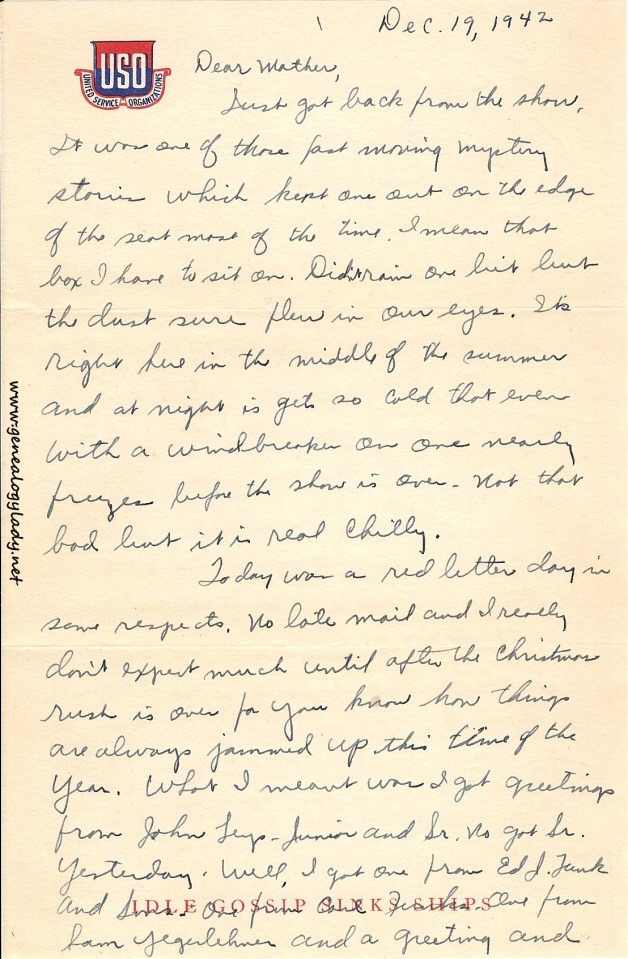 Dec. 19, 1942
USO
UNITED SERVICE ORGANIZATIONS
Dear Mother,
Just got back from the show.
It was one of those fast moving mystery
stories which kept one out on the edge
of the seat most of the time. I mean that
box I have to sit on. Didn't rain one bit but
the dust sure flew in our eyes. Its
right here in the middle of the summer
and at night is gets so cold that even
with a windbreaker on one nearly
freezes before the show is over - Not that
bad but it is real chilly.
Today was a red letter day in
some respects. No late mail and I really
don't expect much until after the Christmas
rush is over for you know how things
are always jammed up this time of the
year. What I meant was I got greetings
from John - Junior and Sr. No got Sr.
Yesterday. Well, I got one from Ed J. Funk
and Sons. One from One from
Sam Yegerlehner and a greeting and
IDLE GOSSIP SINKS SHIPS
www.genealogylady.net